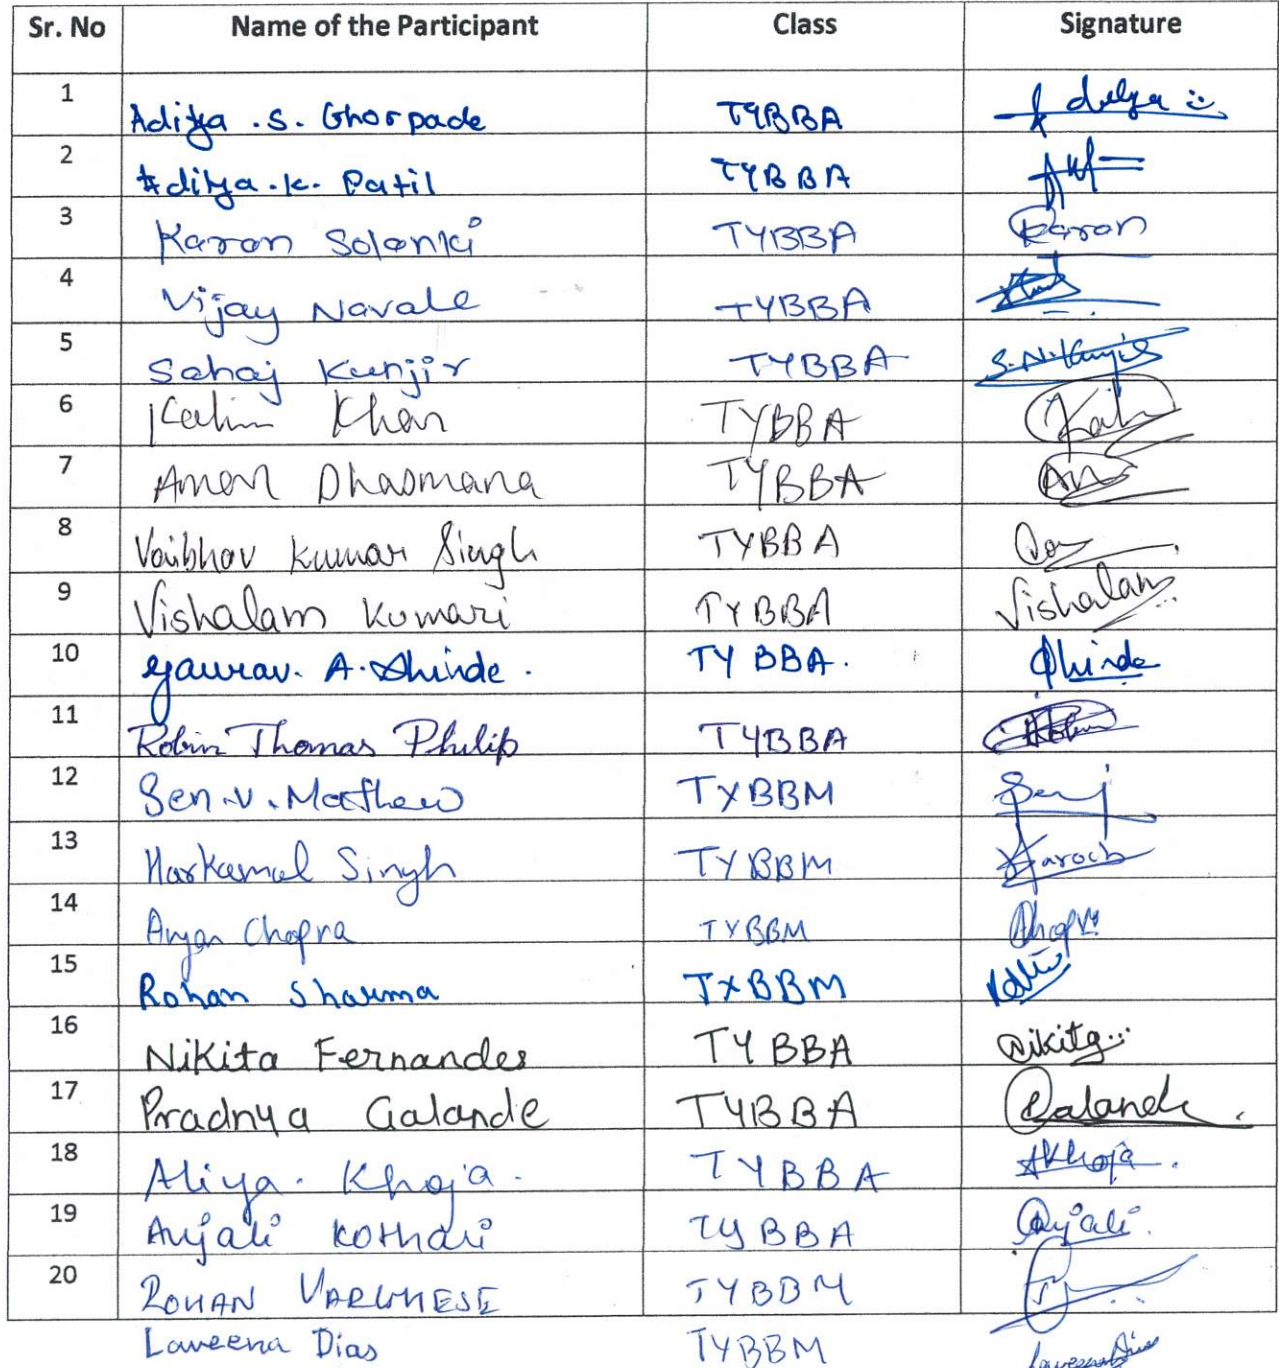 Sr. No Name of the Participant Class Signature
1 Aditya .S. Ghorpade TYBBA Aditya
2 Aditya.K. Patil TYBBA
3 Karan Solanki TYBBA Karan
4 Vijay Navale TYBBA
5 Sahaj Kunjir TYBBA S.N.Kunjir
6 Kalim Khan TYBBA Kalim
7 Aman Dhasmana TYBBA
8 Vaibhav Kumar Singh TYBBA
9 Vishalam Kumari TYBBA Vishalam
10 Gaurav. A. Shinde. TY BBA. Shinde
11 Robin Thomas Philip TYBBA Robin
12 Sen.V.Mathew TYBBM
13 Harkamal Singh TYBBM
14 Aryan Chopra TYBBM
15 Rohan Sharma TYBBM
16 Nikita Fernandes TYBBA Nikita
17 Pradnya Galande TYBBA Galande
18 Aliya. Khoja. TYBBA AKhoja.
19 Anjali Kothari TYBBA Anjali.
20 ROHAN VARGHESE TYBBM
Laveena Dias TYBBM Laveena Dias